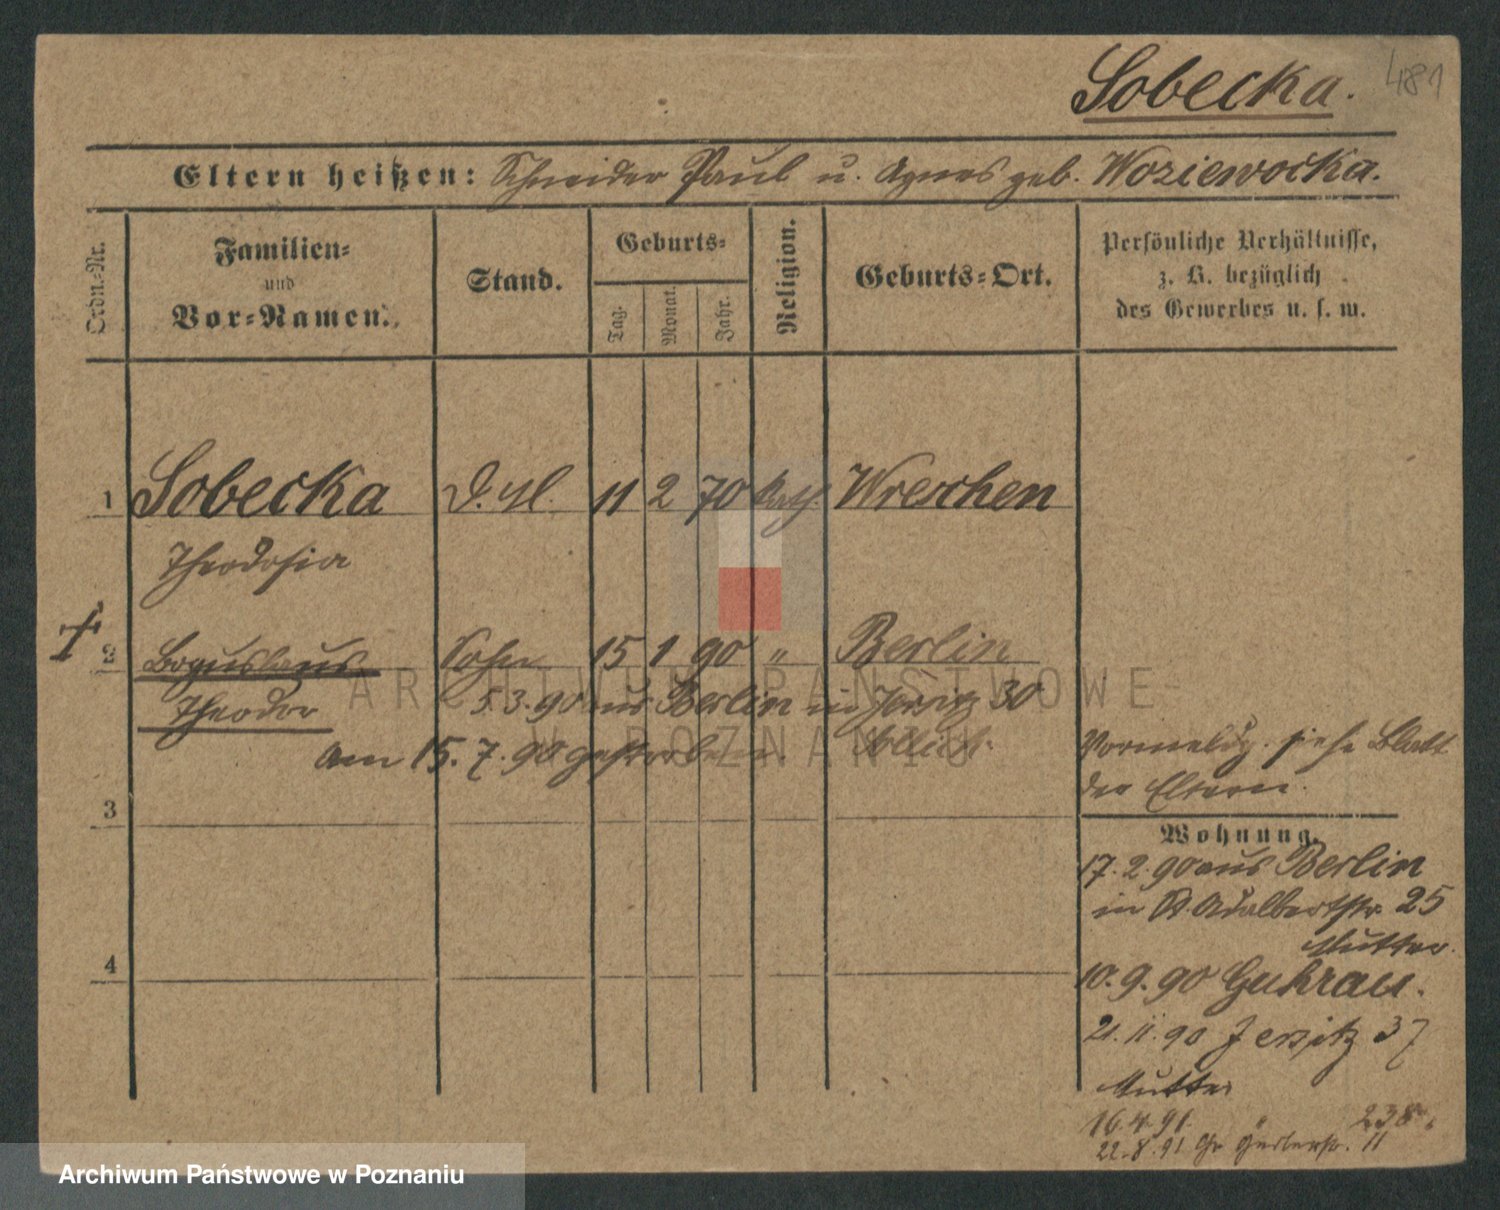 Sobecka.
481
Eltern heißen: Schneider Paul u. Agnes geb. Woziewocka.
Ordn.-Nr.
Familien- und Vor-Namen.
Stand.
Geburts-
Tag.
Monat.
Jahr.
Religion.
Geburts-Ort.
Persönliche Verhältnisse,
z. B. bezüglich
des Gewerbes u. s. w.
1 Sobecka 11 2 70 kath. Wreschen
Theodosia
2 Boguslaus Sohn 15 1 90 " Berlin
Theodor 5.3.90 aus Berlin in Jersitz 30
am 15.7.90 gestorben.
Vormeldg. siehe Blatt
der Eltern.
3
Wohnung.
17.2.90 aus Berlin
in St. Adalbertstr. 25
Mutter.
4
10.9.90 Guhrau.
21.11.90 Jersitz 37
Mutter
16.4.91. " 238
22.8.91 Gr. Gerberstr. 11
ARCHIWUM PAŃSTWOWE
W POZNANIU
Archiwum Państwowe w Poznaniu